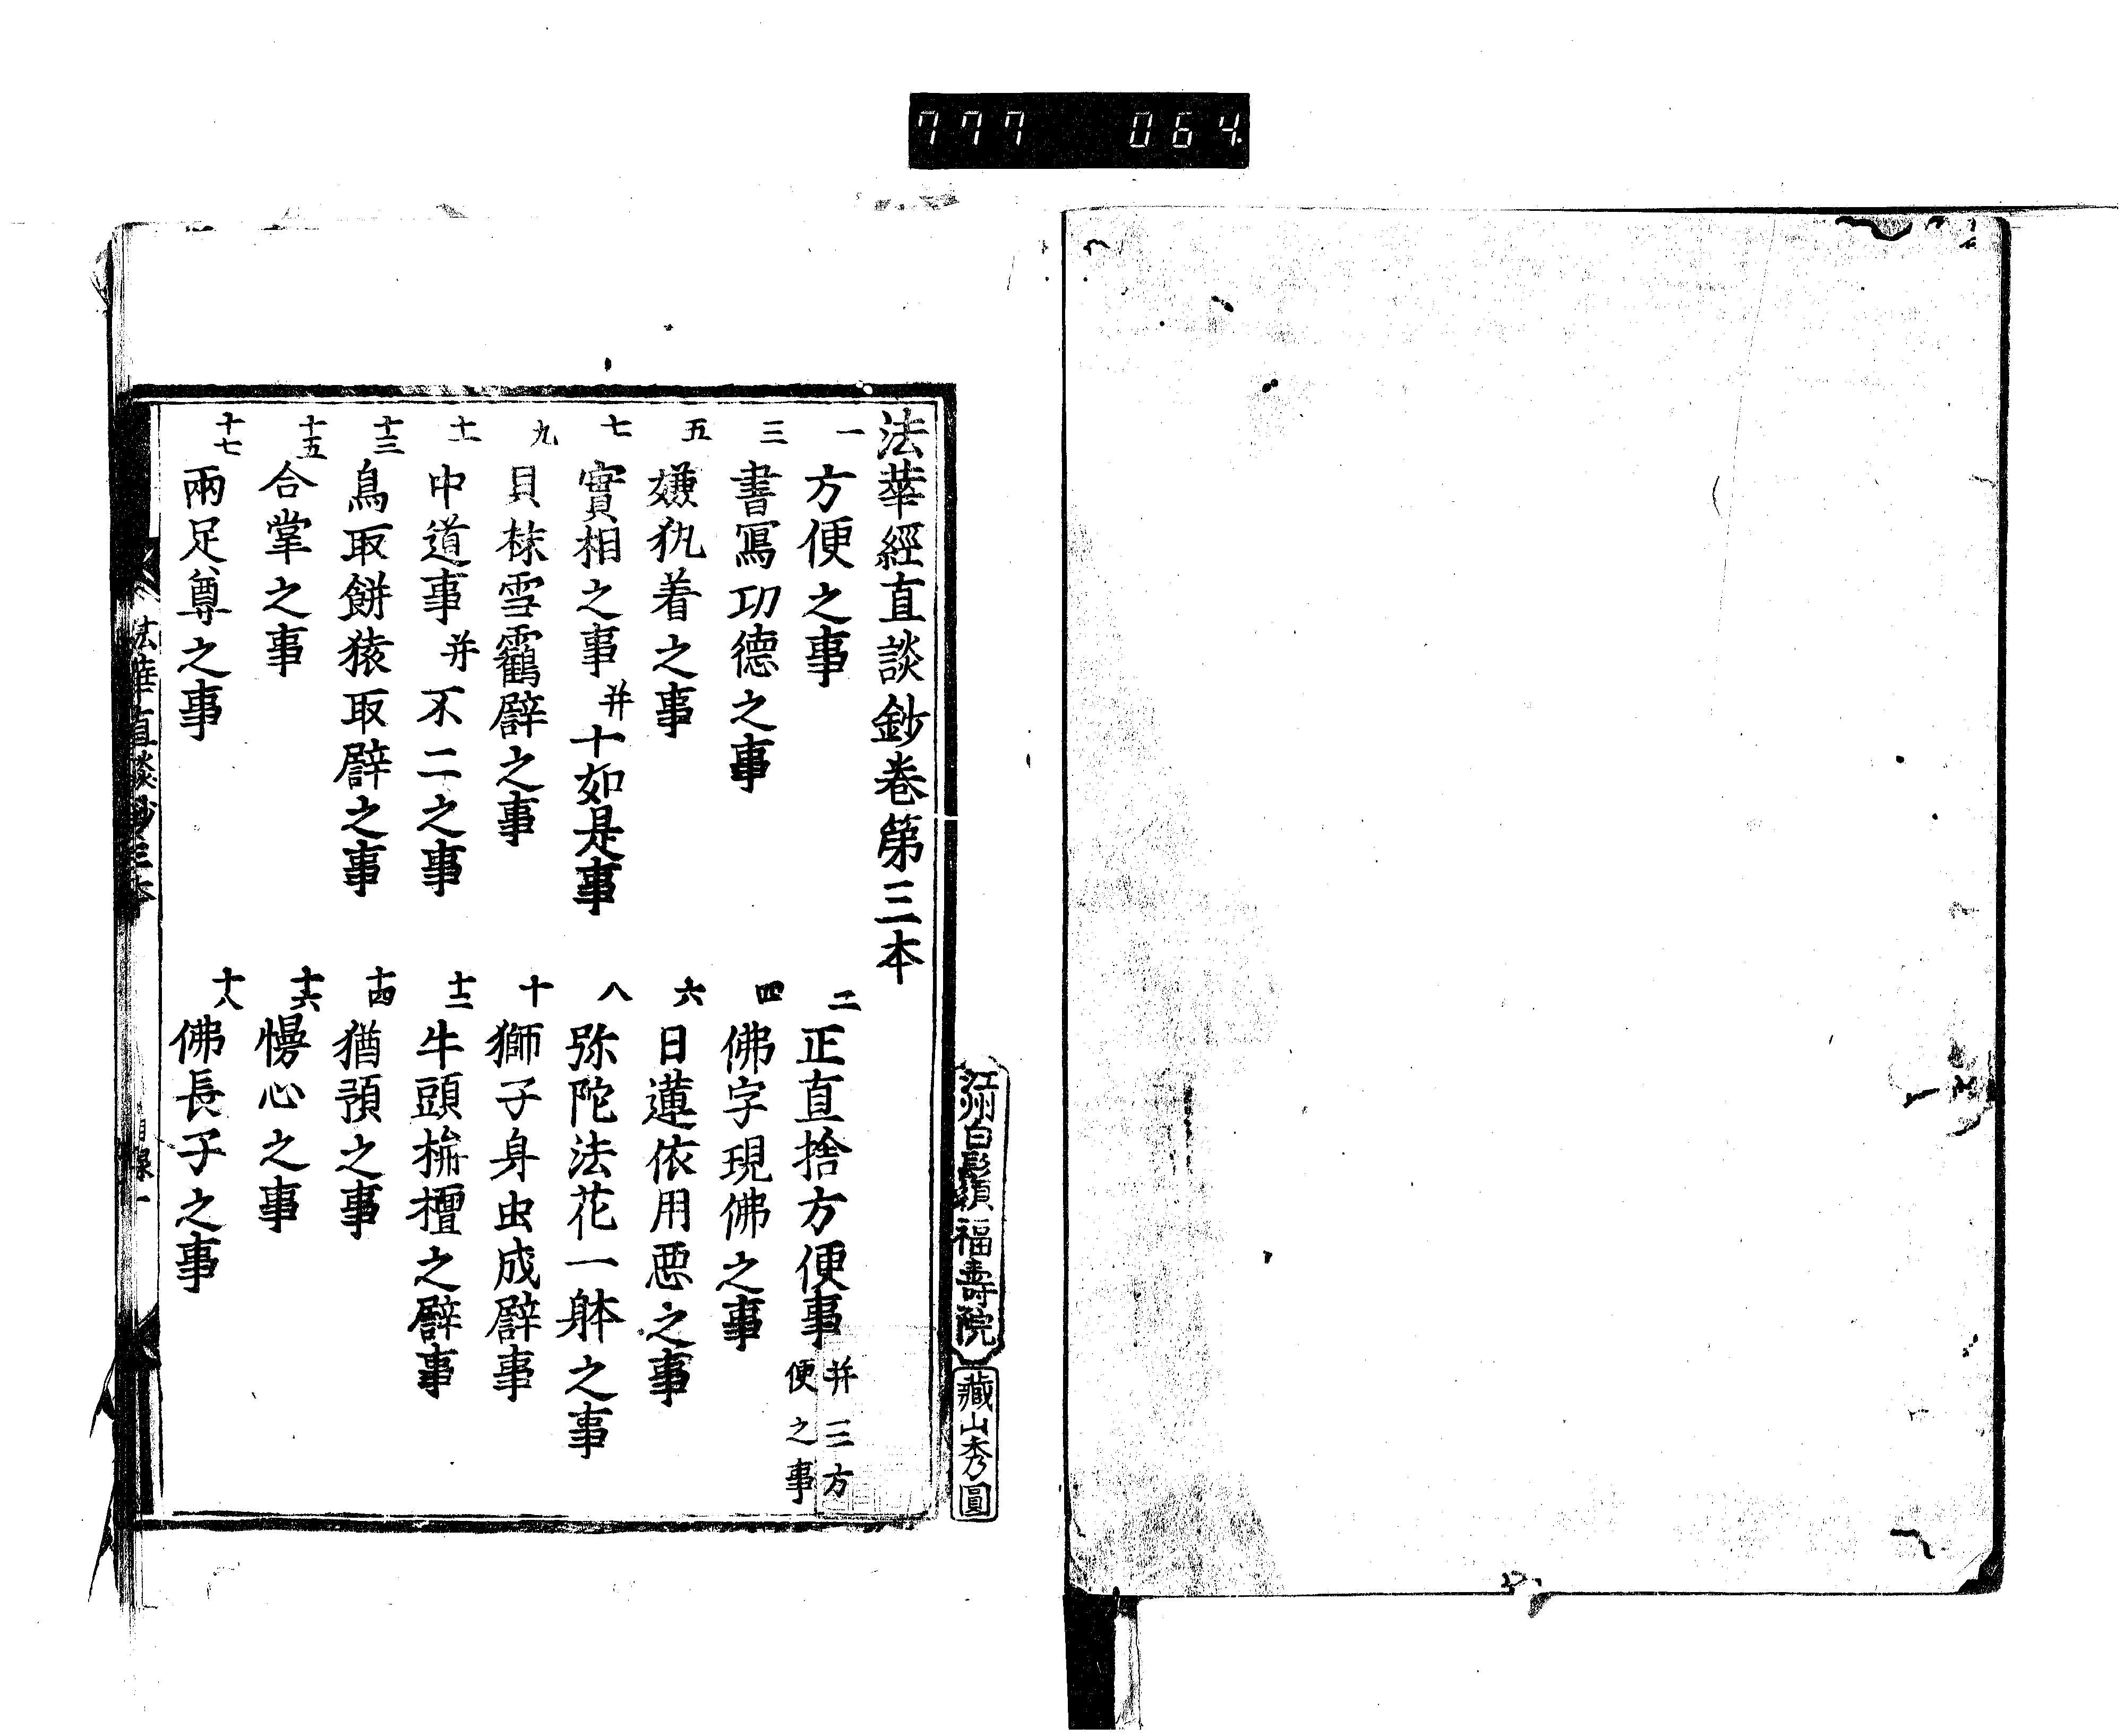 777 064
江州白鬚領福壽院
藏山秀圓
法華經直談鈔卷第三本
一 方便之事
二 正直捨方便事 并三方便之事
三 書寫功德之事
四 佛字現佛之事
五 嫌执着之事
六 日蓮依用悪之事
七 實相之事 并十如是事
八 弥陀法花一躰之事
九 貝秣雪鸖辟之事
十 獅子身虫成辟事
十一 中道事 并不二之事
十二 牛頭栴檀之辟事
十三 鳥取餅猿取辟之事
十四 猶預之事
十五 合掌之事
十六 慢心之事
十七 兩足尊之事
十八 佛長子之事
法華直談鈔三本 目録一